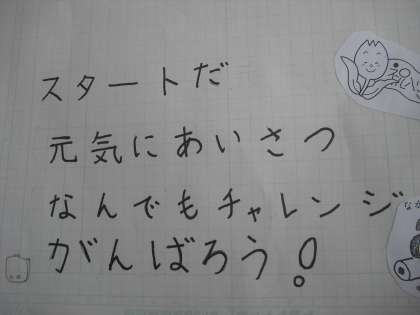 スタートだ
元気にあいさつ
なんでもチャレンジ
がんばろう!
なが